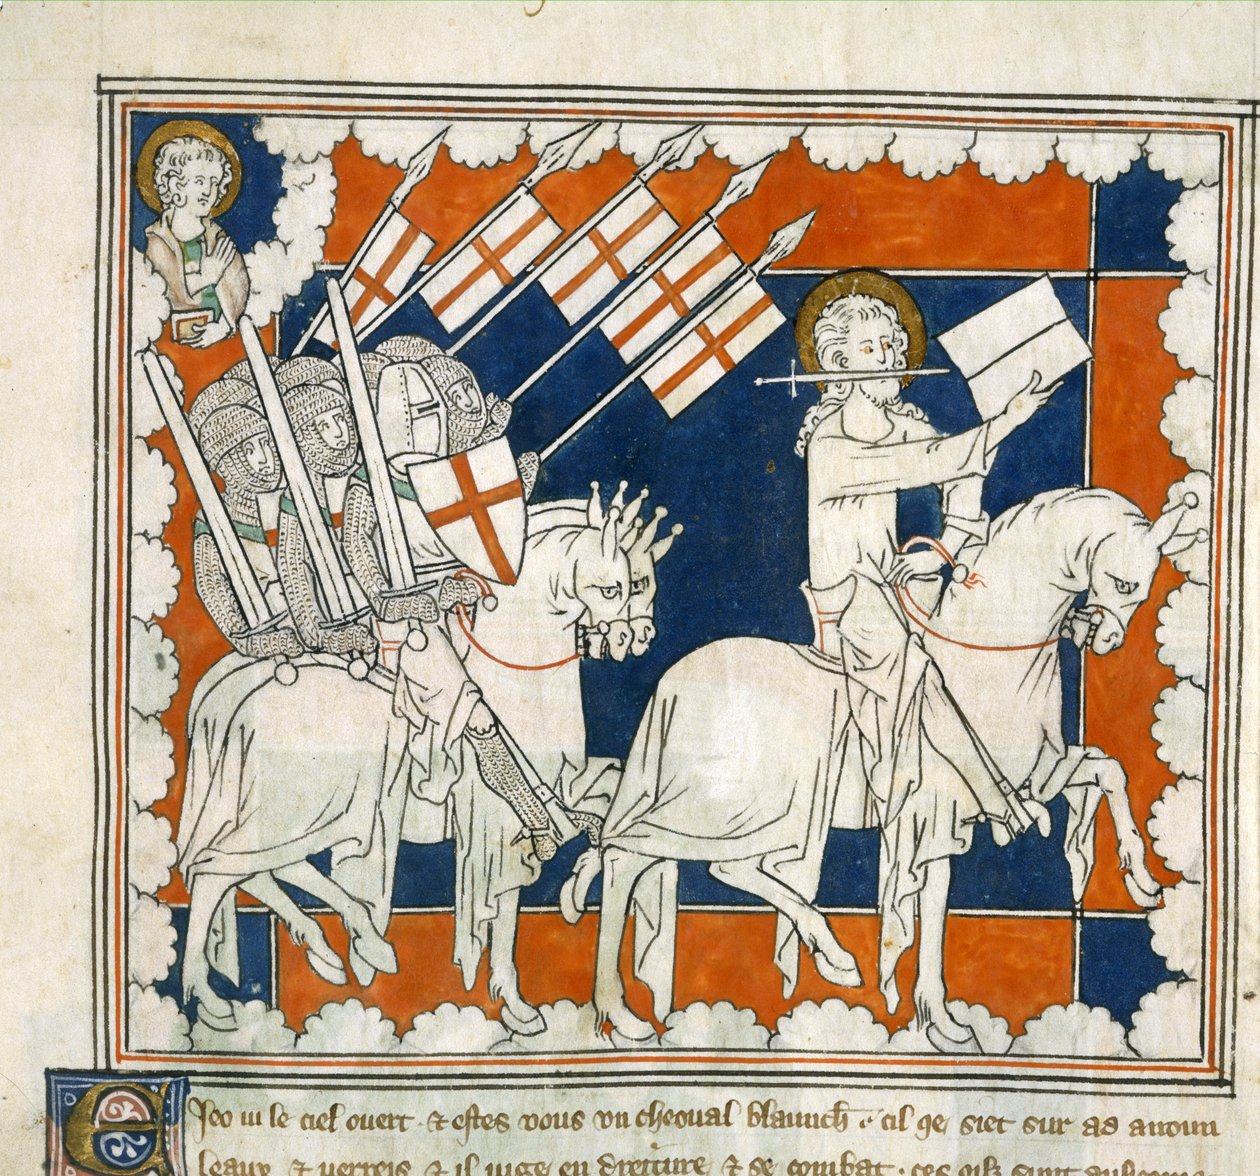 E Jeo ui le ciel ouert · & estes uous un cheoual blaunch · cil qe siet sur ad anoun
leaux & uerreis & il iuge en dreiture & se combat · ces oilz sunt